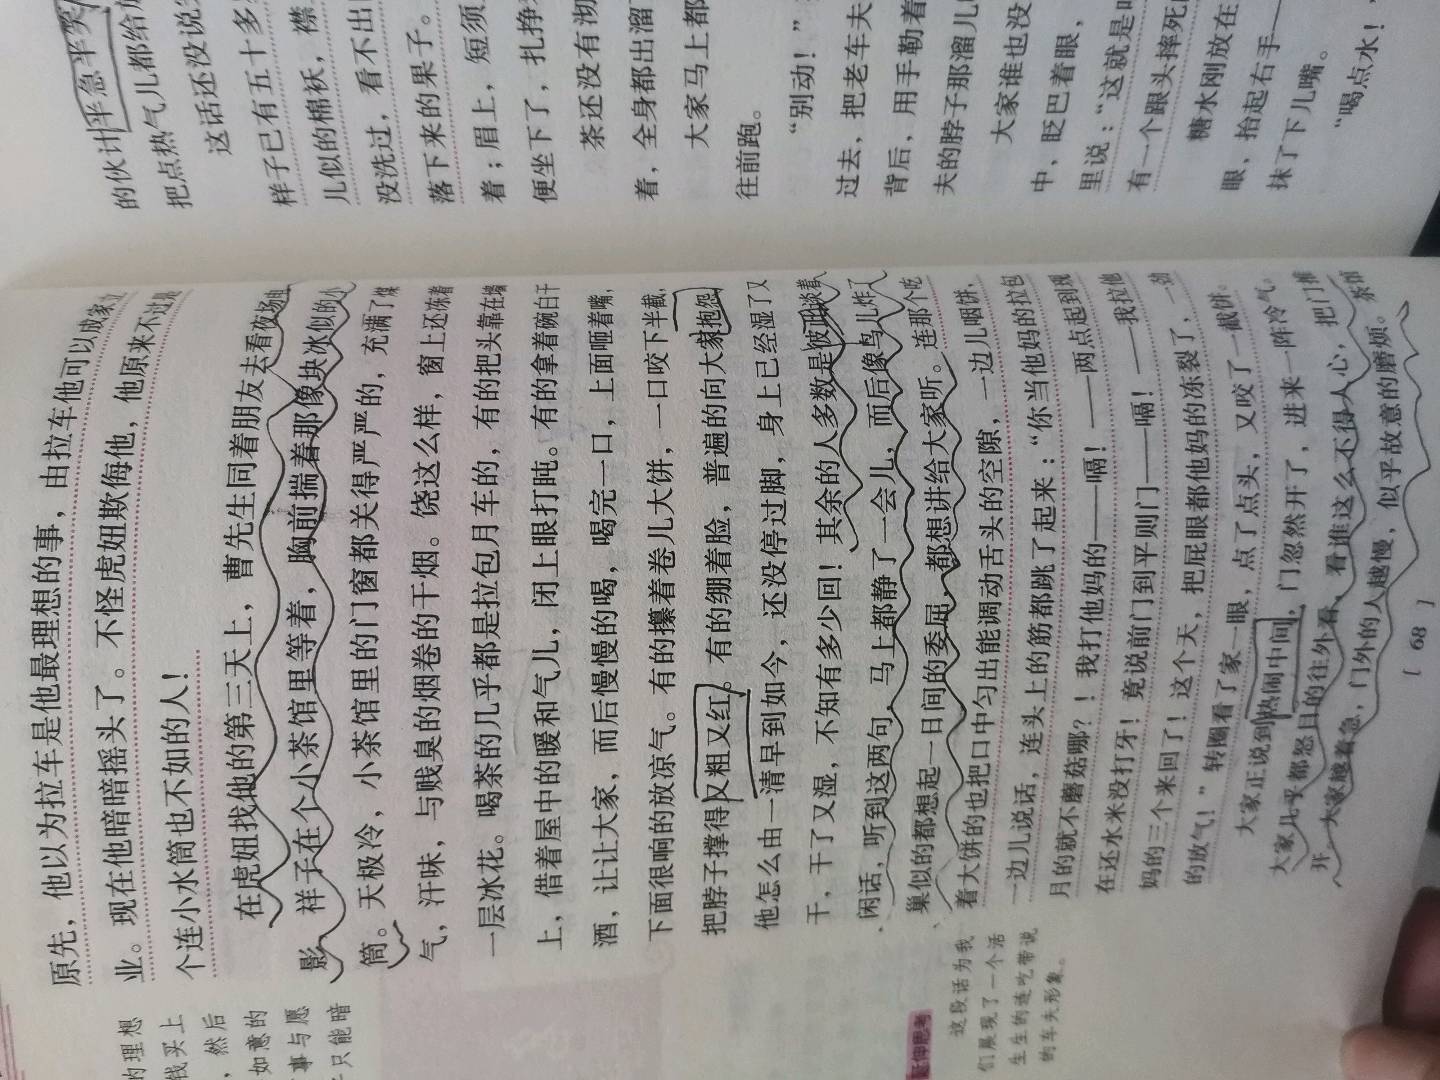 原先，他以为拉车是他最理想的事，由拉车他可以成家立
业。现在他暗暗摇头了。不怪虎妞欺侮他，他原来不过是
个连小水筒也不如的人！
在虎妞找他的第三天上，曹先生同着朋友去看夜场电
影，样子在个小茶馆里等着，胸前揣着那像块冰似的小
筒。天极冷，小茶馆里的门窗都关得严严的，充满了煤
气，汗味，与贱臭的烟卷的干烟。饶这么样，窗上还冻着
一层冰花。喝茶的几乎都是拉包月车的，有的把头靠在墙
上，借着屋中的暖和气儿，闭上眼打盹。有的拿着碗白干
酒，让让大家，而后慢慢的喝，喝完一口，上面咂着嘴，
下面很响的放凉气。有的攥着卷儿大饼，一口咬下半截，
把脖子撑得又粗又红。有的绷着脸，普遍的向大家抱怨，
他怎么由一清早到如今，还没停过脚，身上已经湿了又
干，干了又湿，不知有多少回！其余的人多数是彼此谈着
闲话，听到这两句，马上都静了一会儿，而后像鸟儿炸了
巢似的都想起一日间的委屈，都想讲给大家听。连那个吃
着大饼的也把口中匀出能调动舌头的空隙，一边儿咽饼，
一边儿说话，连头上的筋都跳了起来：“你当他妈的拉包
月的就不磨菇哪？！我打他妈的——嗝！——两点起到现
在还水米没打牙！竟说前门到平则门——嗝！——我拉他
妈的三个来回了！这个天，把屁眼都他妈的冻裂了，一劲
的放气！”转圈看了大家一眼，点了点头，又咬了一截饼。
大家正说到热闹中间，门忽然开了，进来一阵冷气。
大家几乎都怒目的往外看，看谁这么不得人心，把门推
开。大家越着急，门外的人越慢，似乎故意的磨烦。茶馆
[ 68 ]
延伸思考
这段话为我
们展现了一个活
生生的连吃带说
的车夫形象。
的理想
钱买上
，然后
如意的
事与愿
只能暗
的伙计半急半笑
把点热气儿都给
这话还没说
样子已有五十多
儿似的棉袄，襟
没洗过，看不出
落下来的果子。
着；眉上，短须
便坐下了，扎挣
茶还没有沏
着，全身都出溜
大家马上都
往前跑。
“别动！”
过去，把老车夫
背后，用手勒着
夫的脖子那溜儿
大家谁也没
中，眨巴着眼，
里说：“这就是
有一个跟头摔死
糖水刚放在
眼，抬起右手——
抹了下儿嘴。
“喝点水！